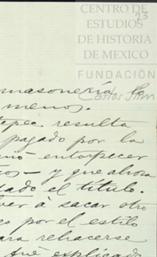 CENTRO DE
ESTUDIOS
DE HISTORIA
DE MEXICO
FUNDACIÓN
Carlos Slim
masonería la
menos.
tepec resulta
pagado por la
entorpecer
os - y que ahora
ado el título.
ver á sacar otro
co por el estilo
ara rehacerse
que explicado